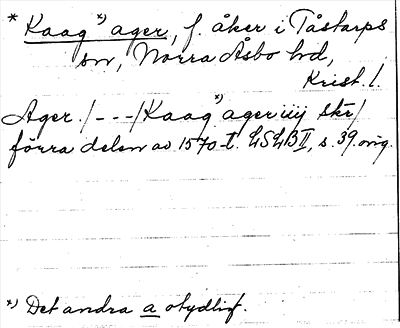 * Kaag*) ager, f. åker i Tåstarps
sn, Norra Åsbo hd,
Krist. l.
Ager. /---/ Kaag*) ager iiij skr/
förra delen av 1570-t. LSLB II, s. 39. orig.
*) Det andra a otydligt.